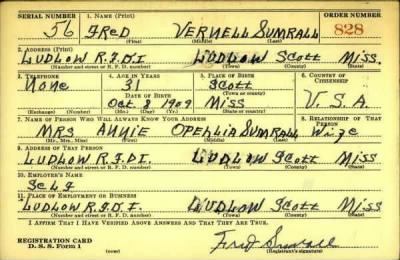 SERIAL NUMBER 1. NAME (Print) ORDER NUMBER
56 FRED VERNELL SUMRALL 828
(First) (Middle) (Last)
2. ADDRESS (Print)
LUDLOW R.F.D.I LUDLOW SCOTT MISS.
(Number and street or R. F. D. number) (Town) (County) (State)
3. TELEPHONE 4. AGE IN YEARS 5. PLACE OF BIRTH 6. COUNTRY OF CITIZENSHIP
NONE 31 SCOTT
DATE OF BIRTH (Town or county)
OCT. 8 1909 MISS U.S.A.
(Exchange) (Number) (Mo.) (Day) (Yr.) (State or country)
7. NAME OF PERSON WHO WILL ALWAYS KNOW YOUR ADDRESS 8. RELATIONSHIP OF THAT PERSON
MRS. ANNIE OPELLIA SUMRALL Wife
(Mr., Mrs., Miss) (First) (Middle) (Last)
9. ADDRESS OF THAT PERSON
LUDLOW R.F.D.I. LUDLOW SCOTT MISS
(Number and street or R. F. D. number) (Town) (County) (State)
10. EMPLOYER'S NAME
SELF
11. PLACE OF EMPLOYMENT OR BUSINESS
LUDLOW R.F.D.I. LUDLOW SCOTT MISS
(Number and street or R. F. D. number) (Town) (County) (State)
I AFFIRM THAT I HAVE VERIFIED ABOVE ANSWERS AND THAT THEY ARE TRUE.
REGISTRATION CARD
D. S. S. Form 1 Fred Sumrall
(Registrant's signature)